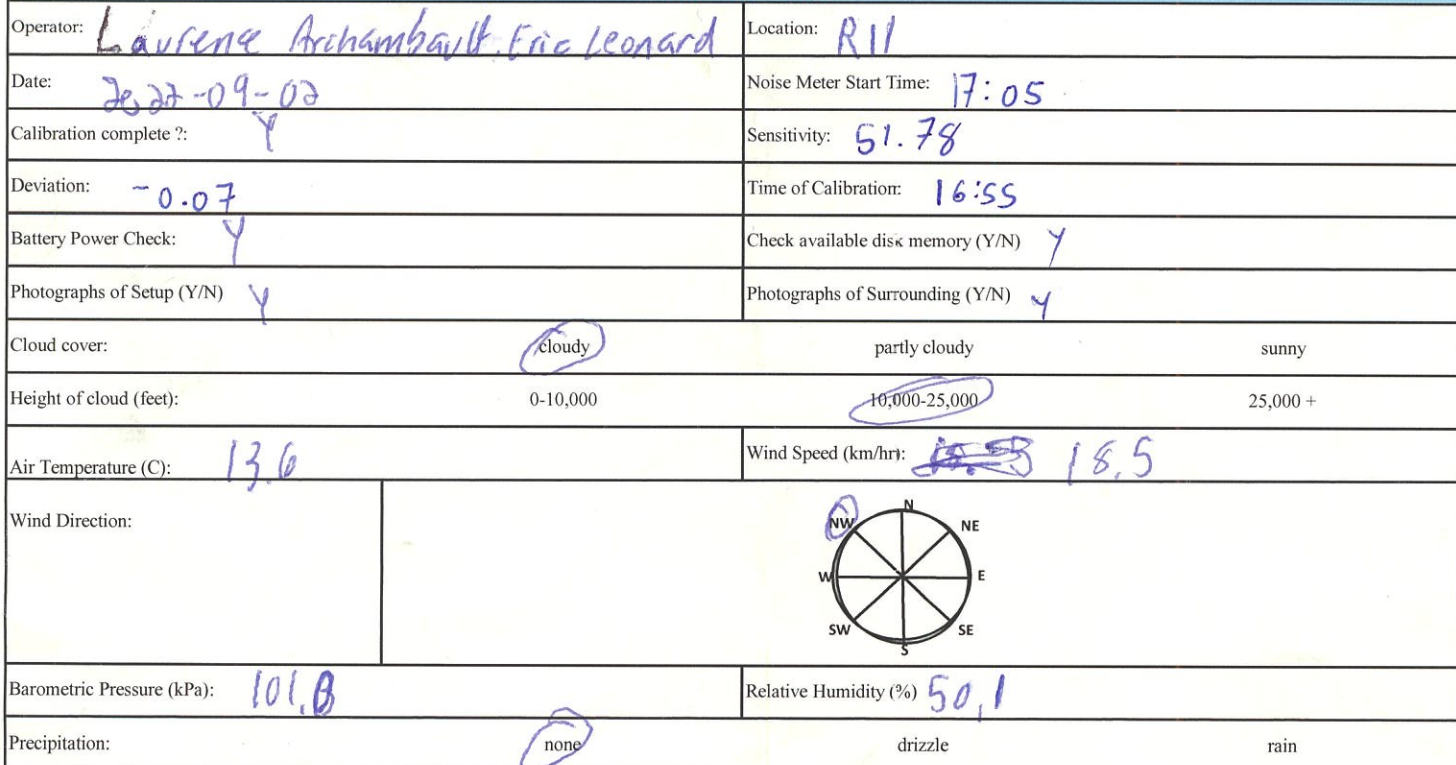 Operator: Laurence Archambault. Eric Leonard Location: R11
Date: 2022-09-02 Noise Meter Start Time: 17:05
Calibration complete ?: Y Sensitivity: 51.78
Deviation: -0.07 Time of Calibration: 16:55
Battery Power Check: Y Check available disk memory (Y/N) Y
Photographs of Setup (Y/N) Y Photographs of Surrounding (Y/N) Y
Cloud cover: cloudy partly cloudy sunny
Height of cloud (feet): 0-10,000 10,000-25,000 25,000 +
Air Temperature (C): 13.6 Wind Speed (km/hr): 18.5
Wind Direction:
N
NW NE
W E
SW SE
S
Barometric Pressure (kPa): Relative Humidity (%) 50,1
Precipitation: none drizzle rain